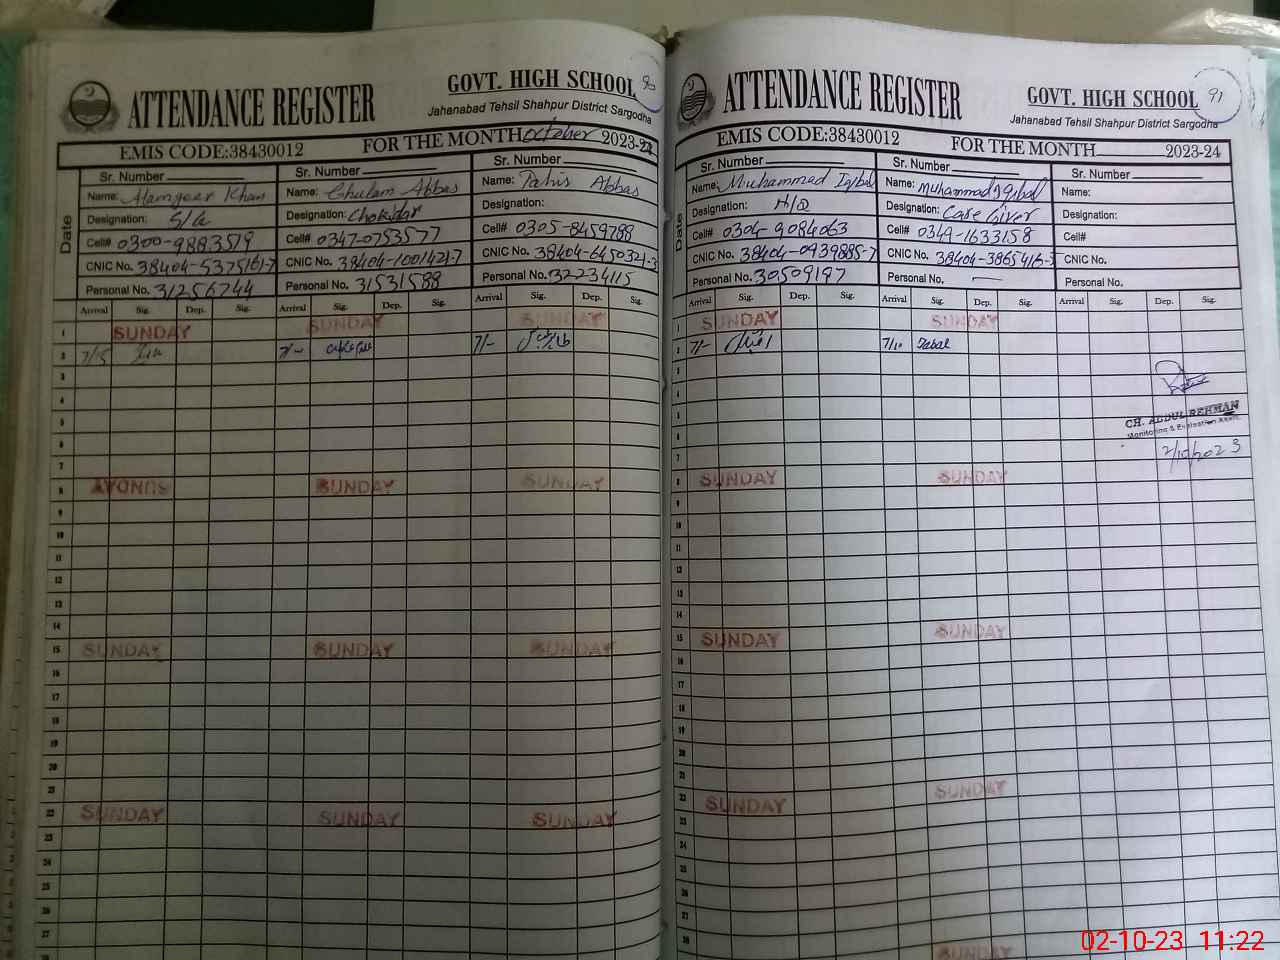 90
ATTENDANCE REGISTER
GOVT. HIGH SCHOOL
Jahanabad Tehsil Shahpur District Sargodha
EMIS CODE:38430012 FOR THE MONTH October 2023-24
Date
Sr. Number Sr. Number Sr. Number
Name: Alamgeer Khan Name: Ghulam Abbas Name: Tahir Abbas
Designation: S/a Designation: Chokidar Designation:
Cell# 0300-9883519 Cell# 0347-0753577 Cell# 0305-8459788
CNIC No. 38404-5375161-7 CNIC No. 38404-1001421-7 CNIC No. 38404-6450321-3
Personal No. 31256744 Personal No. 31531588 Personal No. 32234115
Arrival Sig. Dep. Sig. Arrival Sig. Dep. Sig. Arrival Sig. Dep. Sig.
1 SUNDAY SUNDAY SUNDAY
2 7/5 7/- 7/-
3
4
5
6
7
8 SUNDAY SUNDAY SUNDAY
9
10
11
12
13
14
15 SUNDAY SUNDAY SUNDAY
16
17
18
19
20
21
22 SUNDAY SUNDAY SUNDAY
23
24
25
26
27
28
91
ATTENDANCE REGISTER
GOVT. HIGH SCHOOL
Jahanabad Tehsil Shahpur District Sargodha
EMIS CODE:38430012 FOR THE MONTH 2023-24
Date
Sr. Number Sr. Number Sr. Number
Name: Muhammad Iqbal Name: Muhammad Iqbal Name:
Designation: N/Q Designation: Care Giver Designation:
Cell# 0304-9084063 Cell# 0349-1633158 Cell#
CNIC No. 38404-0939885-7 CNIC No. 38404-3865416-3 CNIC No.
Personal No. 30509197 Personal No. — Personal No.
Arrival Sig. Dep. Sig. Arrival Sig. Dep. Sig. Arrival Sig. Dep. Sig.
1 SUNDAY SUNDAY
2 7/- اقبال 7/10 Iqbal
3
4
5
CH. ABDUL REHMAN
6
Monitoring & Evaluation Asstt.
7
2/10/2023
8 SUNDAY SUNDAY
9
10
11
12
13
14
15 SUNDAY SUNDAY
16
17
18
19
20
21
22 SUNDAY SUNDAY
23
24
25
26
27
28 SUNDAY
02-10-23 11:22